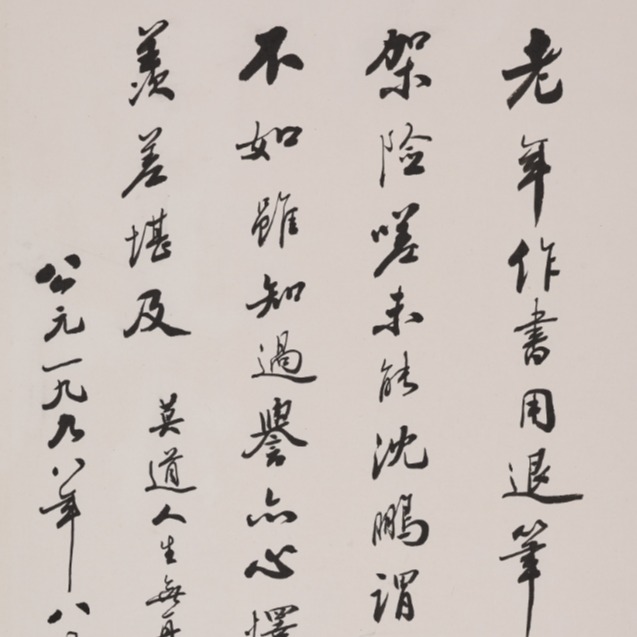 老年作書用退筆
架险嗟未能沈鵬謂
不如雖知過譽亦心懌
羨差堪及
莫道人生無再
公元一九九八年八